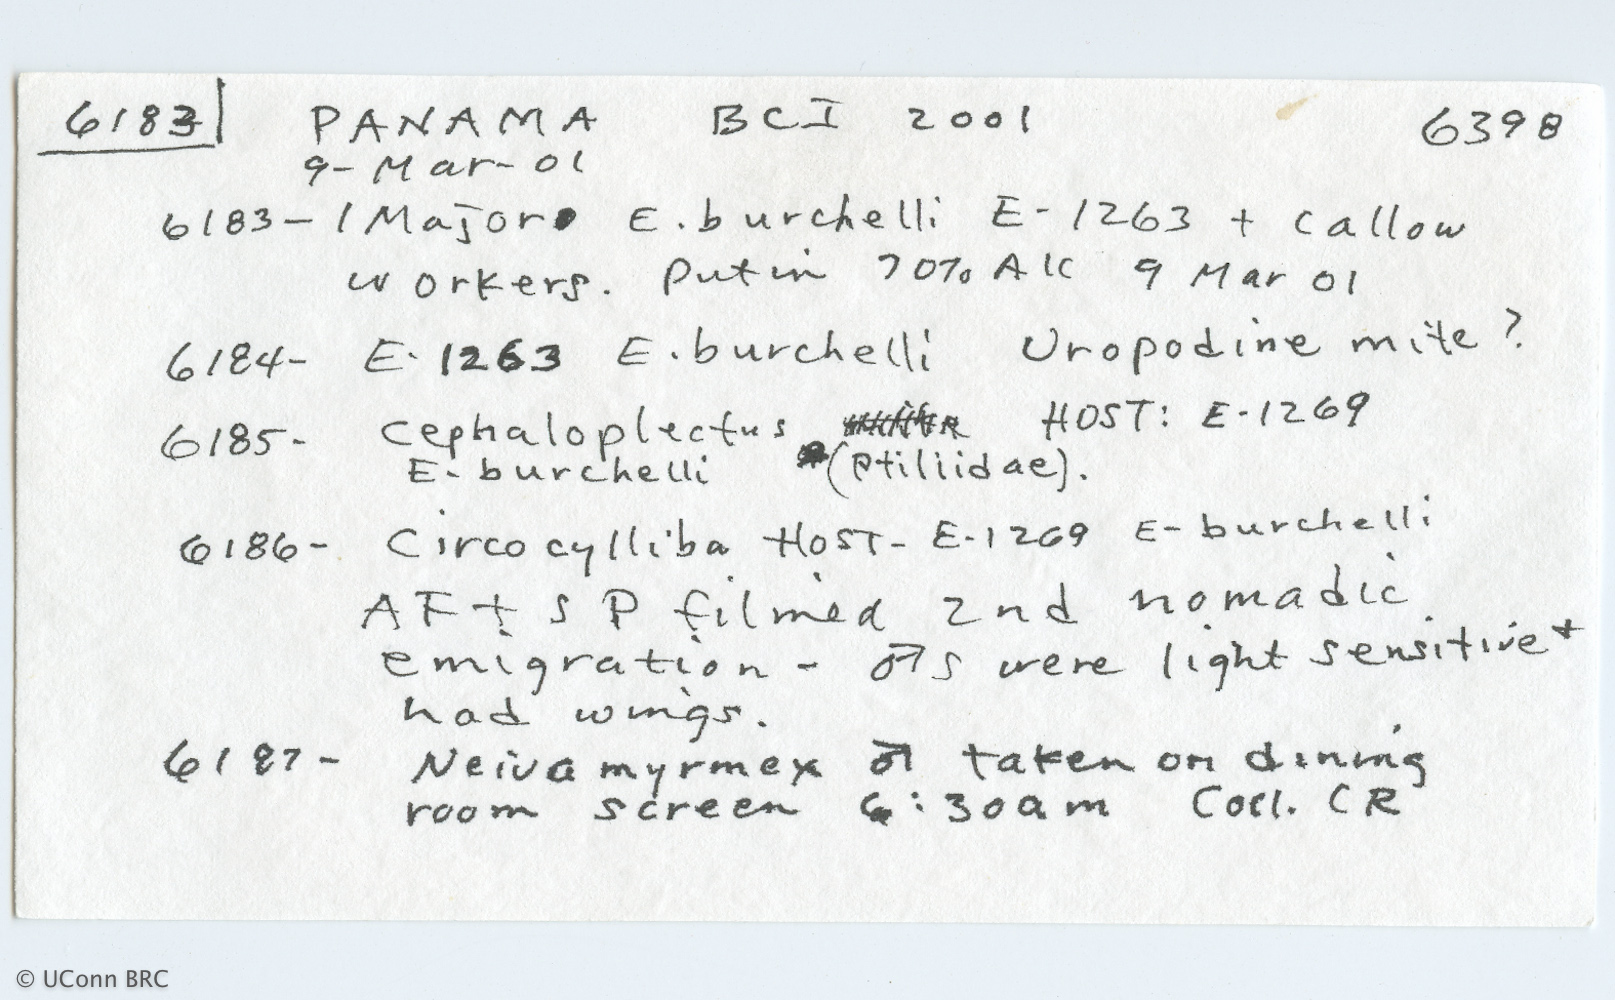 6183 PANAMA BCI 2001 6398
9-Mar-01
6183- 1 Major E. burchelli E-1263 + callow
workers. Put in 70% Alc 9 Mar 01
6184- E-1263 E. burchelli Uropodine mite?
6185- Cephaloplectus HOST: E-1269
E. burchelli (Ptiliidae).
6186- Circocylliba HOST- E-1269 E- burchelli
AF + SP filmed 2nd nomadic
emigration - ♂s were light sensitive +
had wings.
6187- Neivamyrmex ♂ taken on dining
room screen 6:30am Coll. CR
© UConn BRC